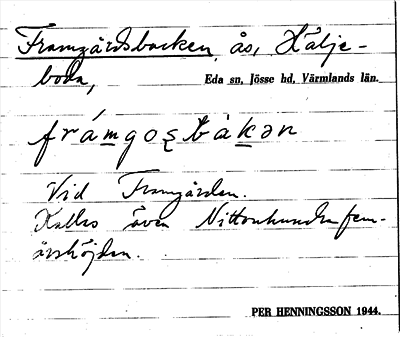 Framgårdsbacken, ås, Hälje-
boda,
Eda sn, Jösse hd, Värmlands län.
frámgos̨bàkən
Vid Framgården.
Kallas även Nittonhundrafem-
årshöjden.
PER HENNINGSSON 1944.